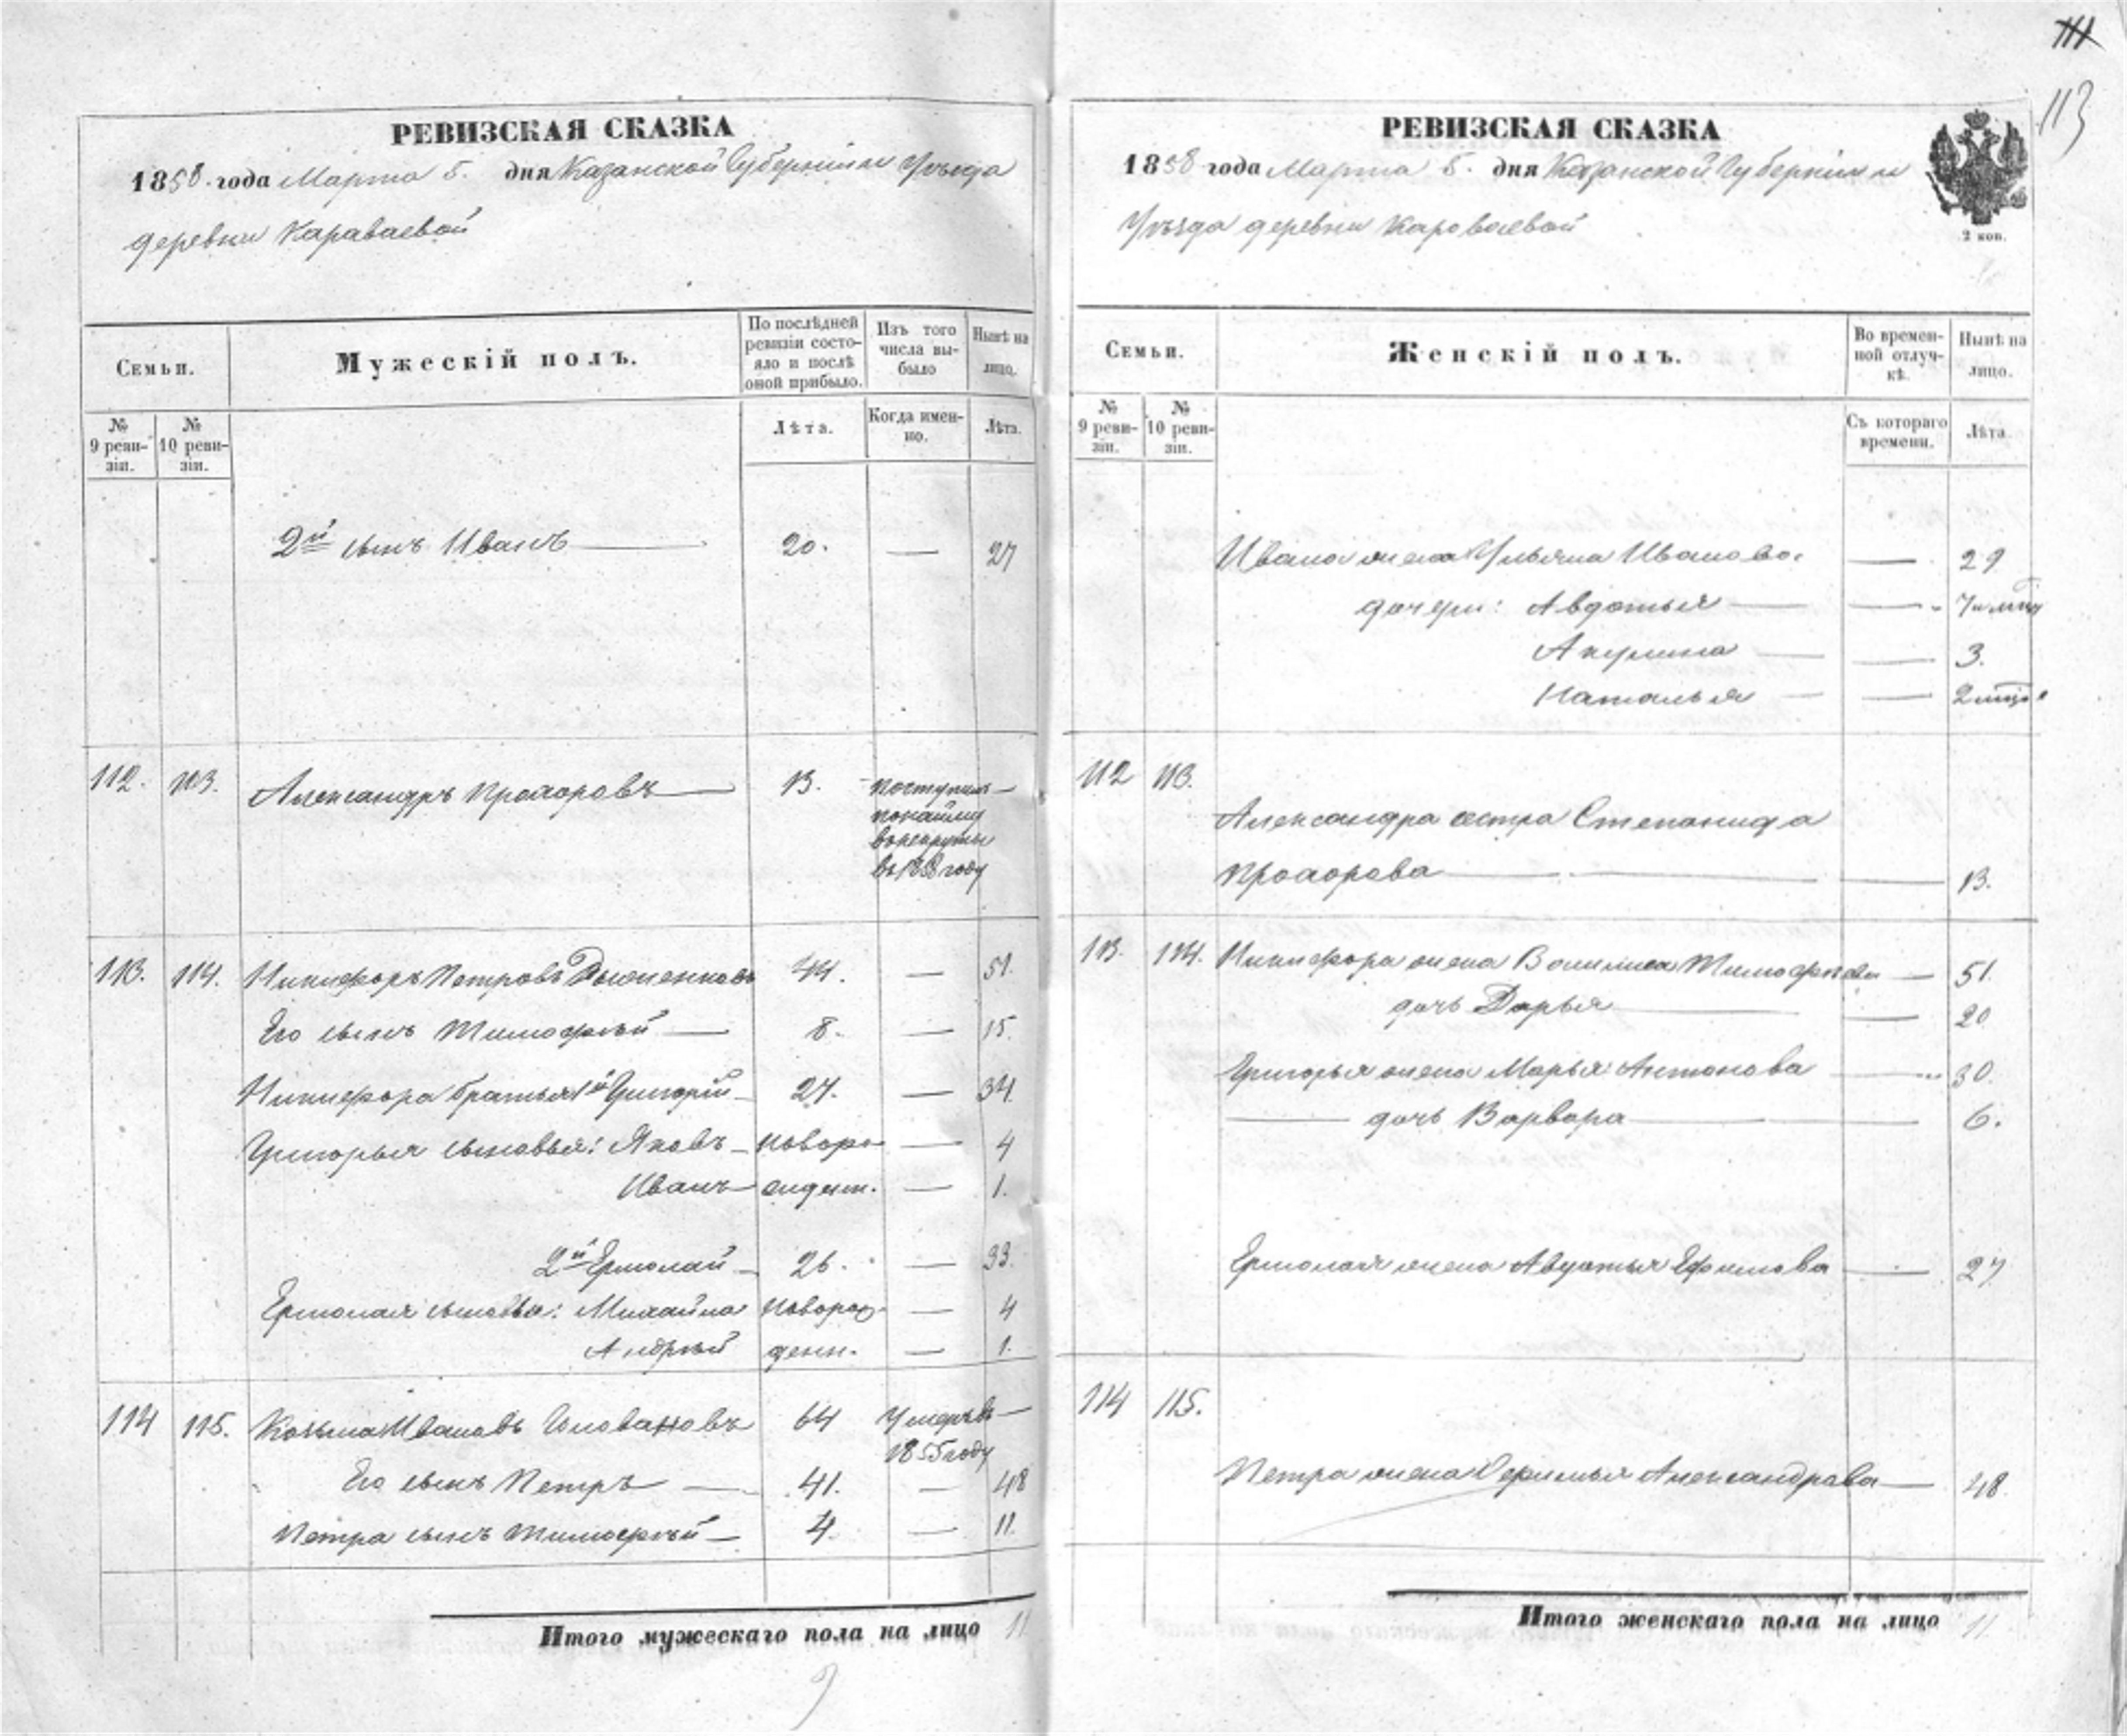 111
113
РЕВИЗСКАЯ СКАЗКА
1858 года Марта 5. дня Казанской Губерніи и Уѣзда
деревни Караваевой
Семьи.
Мужескій полъ.
По послѣдней ревизіи состояло и послѣ оной прибыло.
Изъ того числа выбыло
Нынѣ на лицо.
№ 9 ревизіи.
№ 10 ревизіи.
Лѣта.
Когда именно.
Лѣта.
2й сынъ Иванъ 20. — 27
112. 113. Александръ Прохоровъ 13. поступилъ
по найму
въ рекруты
въ 1858 году
113. 114. Никифоръ Петровъ 44. — 51.
Его сынъ Тимофѣй 8. — 15.
Никифора братья 1й Григорій 27. — 34.
Григорья сыновья: Яковъ новоро — 4
Иванъ — 1.
2й Ермолай 26. — 33.
Ермолая сыновья: Михайло новорож — 4
Андрѣй денн. — 1.
114 115. Козьма Ивановъ Головановъ 64 Умеръ въ
1855 году
Его сынъ Петръ 41. — 48
Петра сынъ Тимофѣй 4. — 11.
Итого мужескаго пола на лицо 11
РЕВИЗСКАЯ СКАЗКА
1858 года Марта 5. дня Казанской Губерніи и
Уѣзда деревни Короваевой
2 коп.
Семьи.
Женскій полъ.
Во временной отлучкѣ.
Нынѣ на лицо.
№ 9 ревизіи.
№ 10 ревизіи.
Съ котораго времени.
Лѣта.
Ивана жена Ульяна Иванова — 29
дочери: Авдотья — 7
Акулина — 3.
Наталья — 2
112 113.
Александра сестра Степанида
Прохорова — 13.
113. 114. Никифора жена Тимофѣева — 51.
дочь Дарья — 20
Григорья жена Марья Антонова — 30.
дочь Варвара — 6.
Ермолая жена Авдотья Ефимова — 27
114 115.
Петра жена Александрова — 48.
Итого женскаго пола на лицо 11.